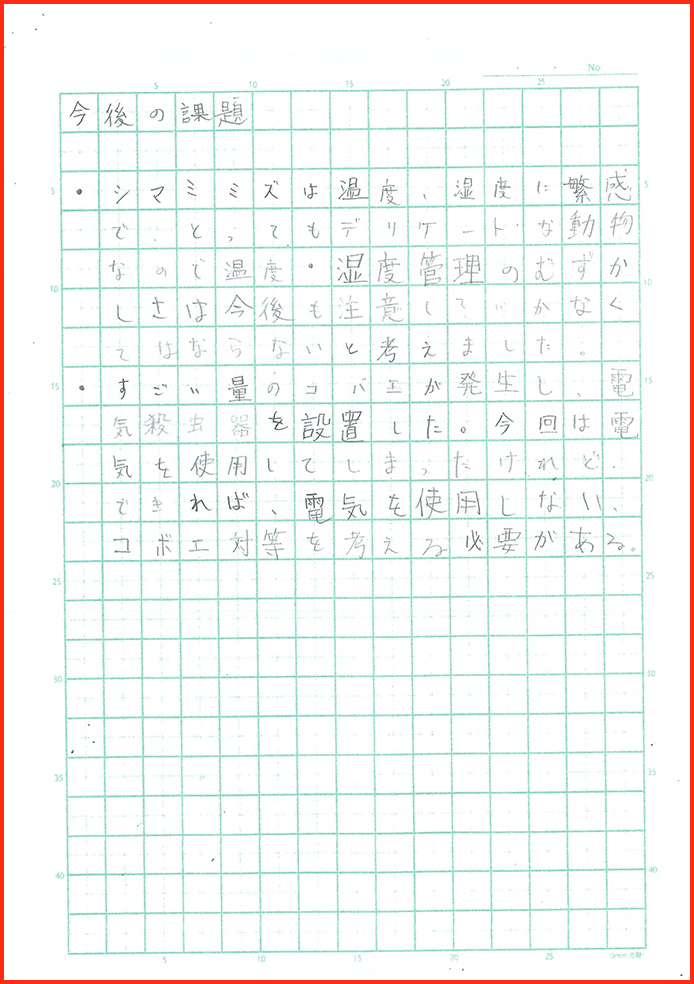 No
今後の課題
・シマミミズは温度、湿度に繁感
で、とってもデリケートな動物
なので温度・湿度管理のむずか
しさは今後も注意していかなく
てはならないと考えました。
・すごい量のコバエが発生し、電
気殺虫器を設置した。今回は電
気を使用してしまったけれど、
できれば、電気を使用しない、
コボエ対等を考える必要がある。